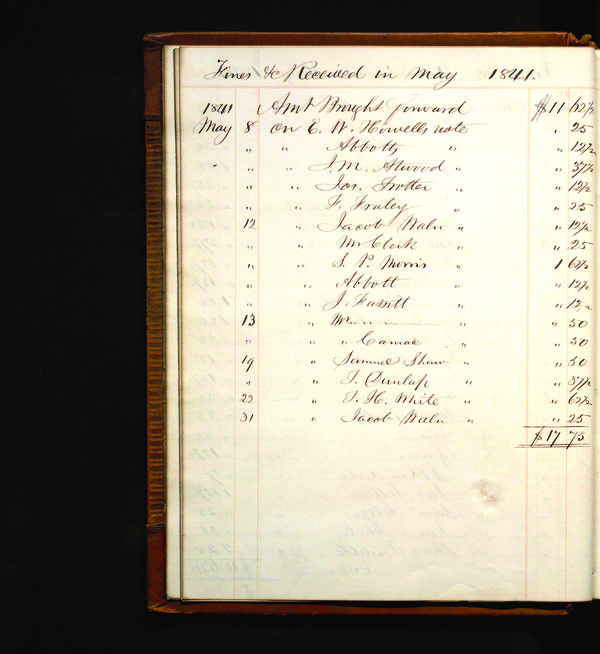 Fines &c Received in May 1841.
1841 Amt Brought forward $11 62½
May 8 on E. W. Howells note " 25
" " " Abbotts " " 12½
" " " J. M. Atwood " " 37½
" " " Jos. Trotter " " 12½
" " " F. Fraley " " 25
12 " Jacob Waln " " 12½
" " " Mr Clerk " " 25
" " " S. P. Morris " 1 62½
" " " Abbott " " 12½
" " " J. Fassitt " " 12½
13 " " " 50
" " " Camac " " 50
19 " Samuel Shaw " " 50
" " " T. Dunlap " " 37½
22 " J. H. White " " 62½
31 " Jacob Waln " " 25
$17 75